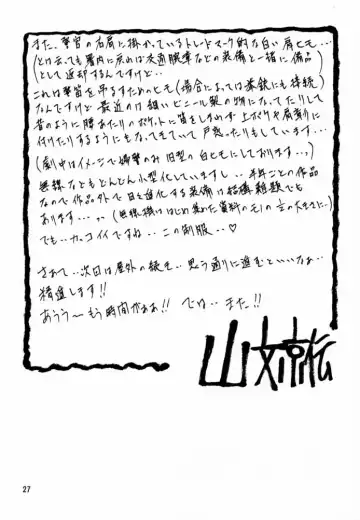 また、警官の右肩に掛かっているトレードマーク的な白い肩ヒモ…
(とは云っても署内に戻れば交通腕章などの装備と一緒に備品
として返却するんですけど…
これは警笛を吊るすためのヒモ(場合によっては拳銃にも接続)
なんですけど最近のは細いビニール製の物になってたりして
昔のように腰あたりのポケットに笛をしのばす上がりや肩割りに
付けたりするようにもなってきていて戸惑ったりもしています…
(劇中はイメージで拳撃のみ旧型の白ヒモにしております…)
無線などもどんどん小型化していますし…半年ごとの作品
なので作品外で日々進化する装備は結構難題でも
あります…(無線機ははじめ集めた資料のモノの 大きさに…)
でも…カッコイイですね…この制服…♡
さぁて…次回は屋外の録も…思う通りに進むといいなぁ…
精進します!!
あうう〜もう時間がぁぁ!! では…また!!
27